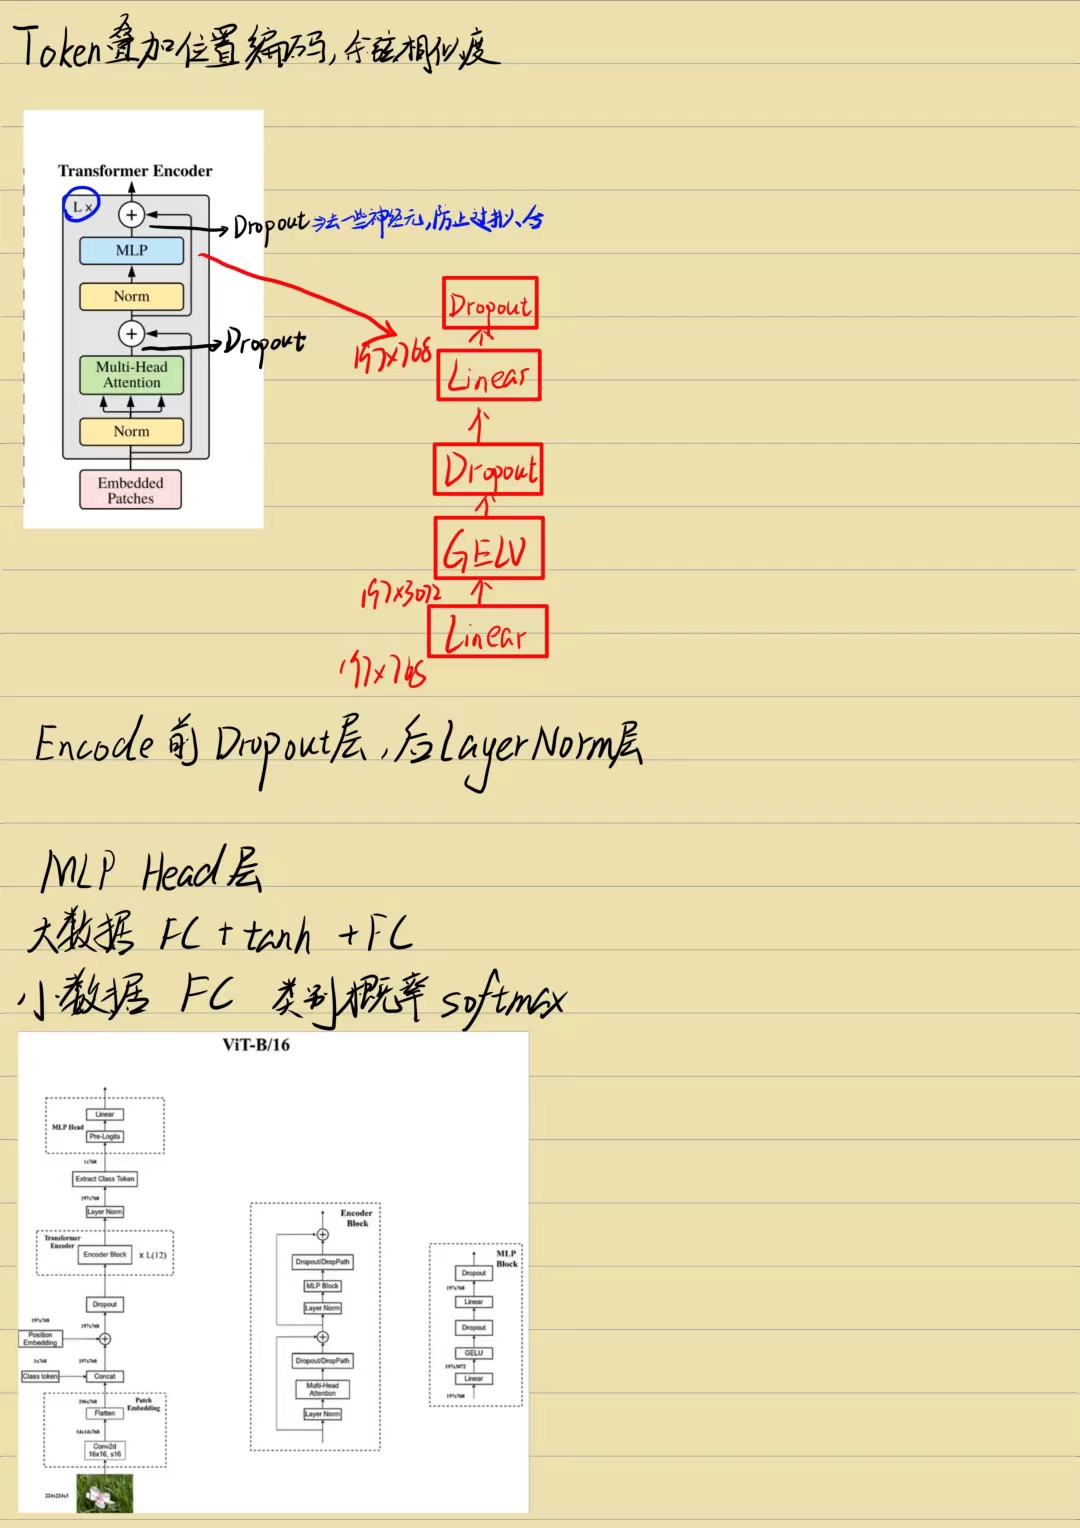 Token叠加位置编码,余弦相似度
Transformer Encoder
L×
+
Dropout 消去一些神经元,防止过拟合
MLP
Norm
+
Dropout
Multi-Head
Attention
Norm
Embedded
Patches
Dropout
197×768
Linear
Dropout
GELU
197×3072
Linear
197×768
Encode前Dropout层,后LayerNorm层
MLP Head层
大数据 FC+tanh+FC
小数据 FC 类别概率 softmax
ViT-B/16
Linear
MLP Head
Pre-Logits
1x768
Extract Class Token
197x768
Layer Norm
Transformer
Encoder
Encoder Block
x L(12)
Dropout
197x768
197x768
Position
Embedding
+
1x768
197x768
Class token
Concat
196x768
Patch
Embedding
Flatten
14x14x768
Conv2d
16x16, s16
224x224x3
Encoder
Block
+
Dropout/DropPath
MLP Block
Layer Norm
+
Dropout/DropPath
Multi-Head
Attention
Layer Norm
MLP
Block
Dropout
197x768
Linear
Dropout
GELU
197x3072
Linear
197x768